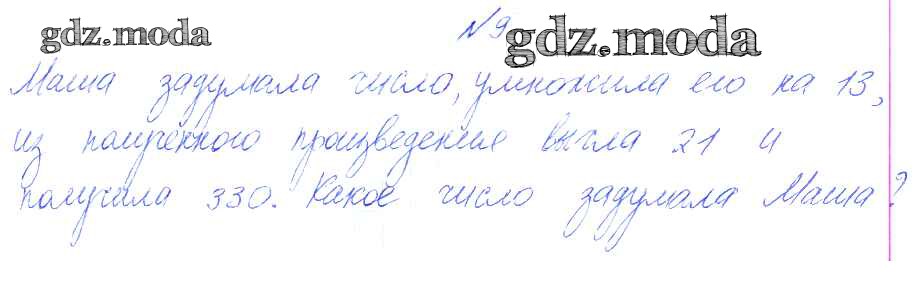 №9
gdz.moda gdz.moda
Маша задумала число, умножила его на 13,
из полученного произведения вычла 21 и
получила 330. Какое число задумала Маша?